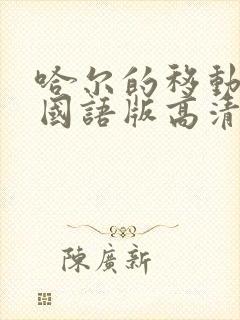 哈尔的移動
國語版高清
陳廣新